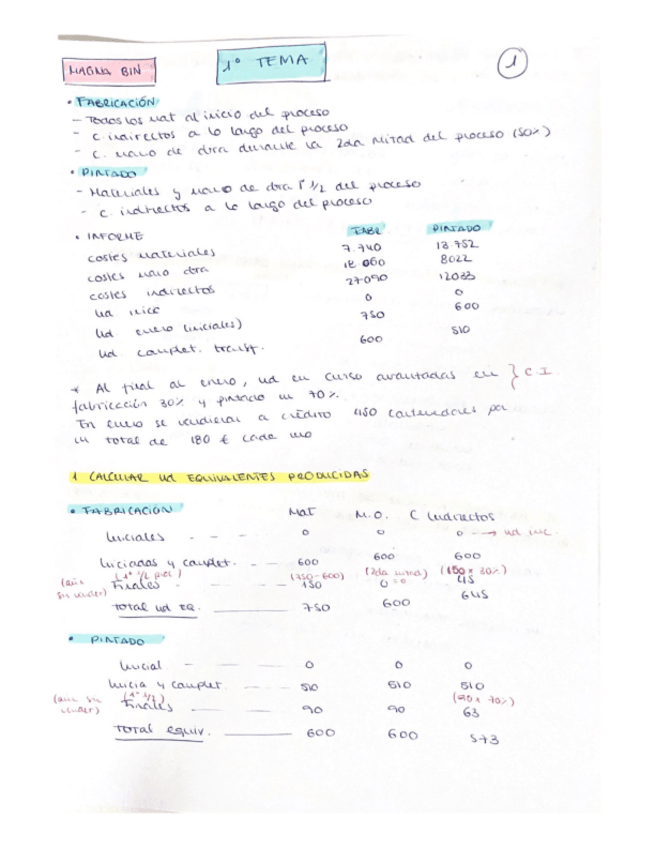 1º TEMA
1
MAGNA BIN
• FABRICACIÓN
- Todos los mat al inicio del proceso
- C. indirectos a lo largo del proceso
- C. mano de obra durante la 2da mitad del proceso (50%)
• PINTADO
- Materiales y mano de obra 1ª 1/2 del proceso
- C. indirectos a lo largo del proceso
• INFORME FABR PINTADO
costes materiales 7.740 13.752
costes mano obra 18.060 8022
costes indirectos 27090 12033
ud inicio 0 0
ud enero (iniciales) 750 600
ud. complet. transf. 600 510
* Al final de enero, ud en curso avanzadas en } C.I.
fabricación 30% y pintado un 70%.
En enero se vendieron a crédito 450 contenedores por
un total de 180 € cada uno
1 CALCULAR Ud EQUIVALENTES PRODUCIDAS
• FABRICACIÓN Mat M.O. C Indirectos
Iniciales - - - 0 0 0 → ud inic.
Iniciadas y complet. - - 600 600 600
(aún sin vender) (1ª 1/2 ) (750-600) (2da mitad) (150 x 30%)
Finales - - 150 0=0 45
Total ud EQ. 750 600 645
• PINTADO
Inicial - - 0 0 0
Inicia y complet. - - 510 510 510
(aún sin vender) (1ª 1/2) (90 x 70%)
Finales 90 90 63
Total equiv. 600 600 573